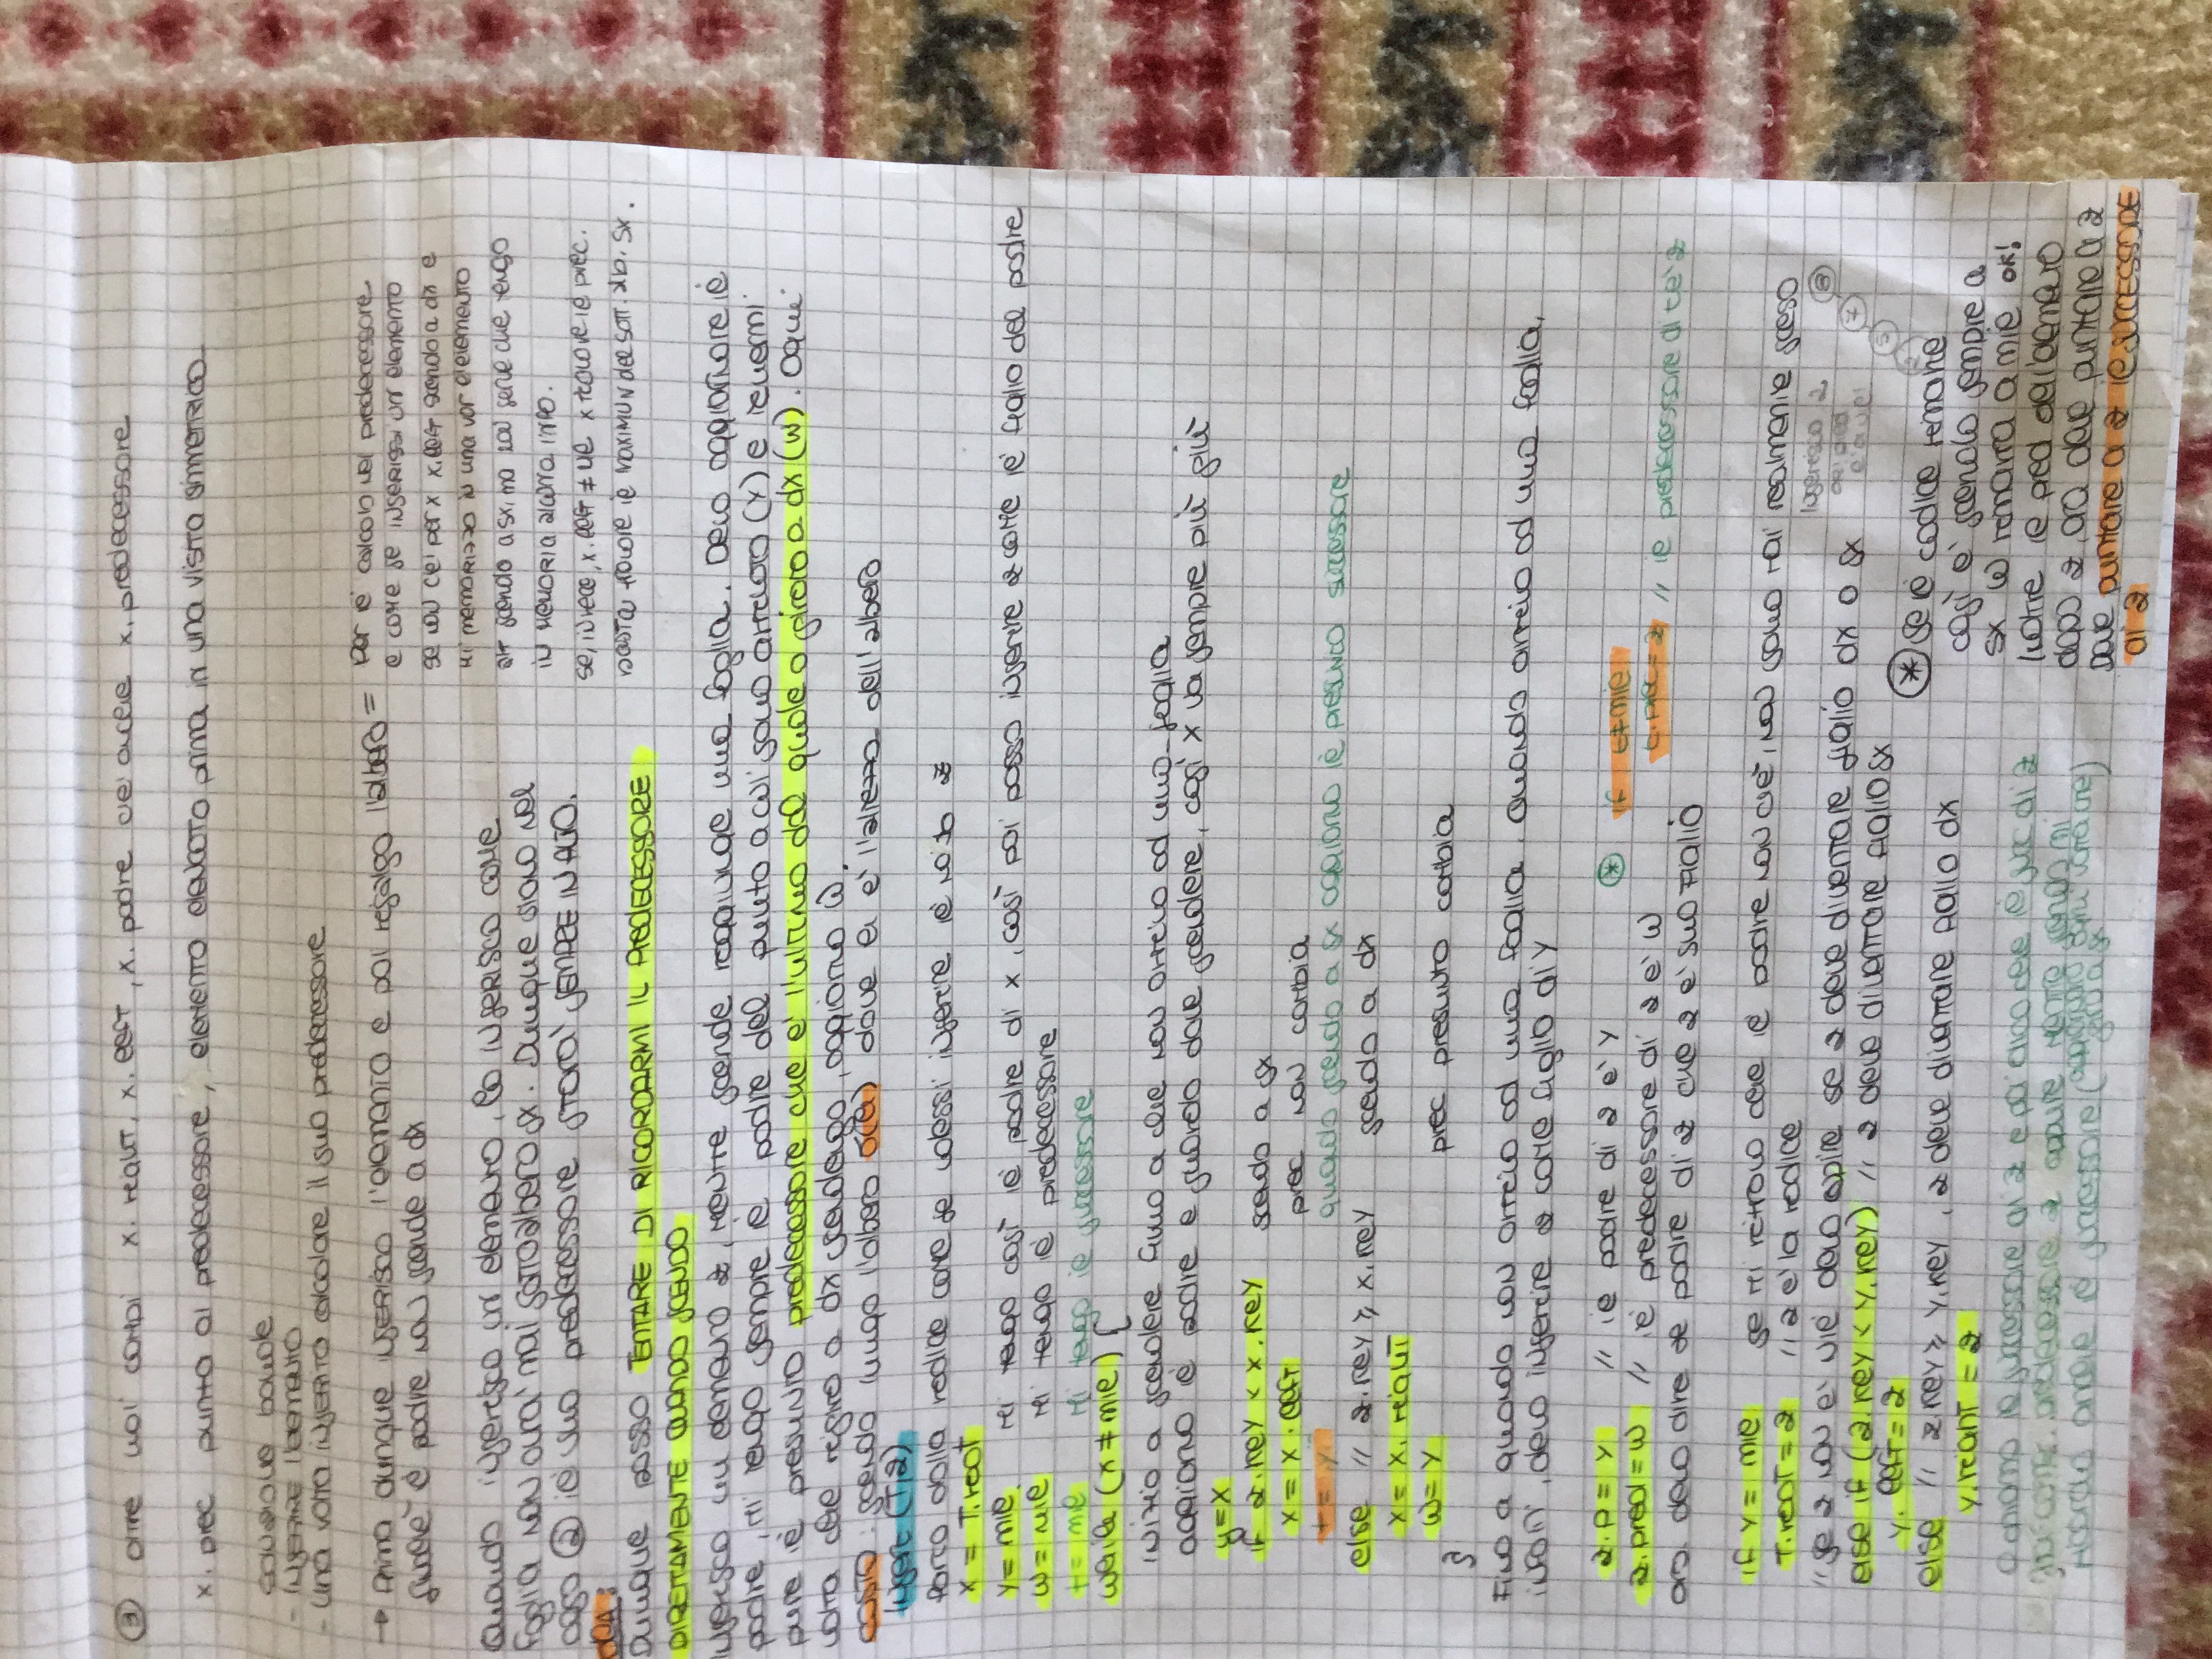 ③ oltre noi campi x. right, x. left, x. padre c'è anche x. predecessore
x. prec punta al predecessore, elemento elencato prima in una visita simmetrica
soluzione banale
- INSERIRE l'elemento
- una volta inserito calcolare il suo predecessore
→ prima dunque inserisco l'elemento e poi risalgo l'albero =
finché il padre non scende a dx
per il calcolo del predecessore
è come se inserissi un elemento
se non c'è per x x.left scendo a dx e
mi memorizzo in una var l'elemento
alt scendo a sx, ma non serve che tengo
in memoria alcuna info.
se, invece, x.left ≠ nil x trovare il prec.
basta trovare il MAXIMUM del sott. alb. sx.
Quando inserisco un elemento, lo inserisco come
foglia non avrà mai sottoalbero sx. Dunque siamo nel
caso ② il suo predecessore starà SEMPRE IN ALTO.
IDEA:
Dunque posso TENTARE DI RICORDARMI IL PREDECESSORE
DIRETTAMENTE QUANDO SCENDO
Inserisco un elemento z, mentre scende raggiunge una foglia. Devo aggiornare il
padre, mi tengo sempre il padre del punto a cui sono arrivato (x) e tenermi
pure il presunto predecessore che è l'ultimo dal quale o girato a dx (w). Ogni
volta che rigiro a dx scendendo, aggiorno w.
COSTO: scendo lungo l'albero O(h) dove h è l'altezza dell'albero
Insert (T,z)
Parto dalla radice come se volessi inserire il nodo z
x = T.root
y = nil mi tengo così il padre di x, così poi posso inserire z come il figlio del padre
w = nil mi tengo il predecessore
t = nil mi tengo il successore
while (x ≠ nil) {
inizio a scendere fino a che non arrivo ad una foglia
aggiorno il padre e guardo dove scendere, così x va sempre più giù
y = x
if z.key < x.key scendo a sx
x = x.left prec non cambia
t = y quando scendo a sx aggiorno il presunto successore
else // z.key ≥ x.key scendo a dx
x = x.right
w = y prec presunto cambia
}
Fino a quando non arrivo ad una foglia. Quando arrivo ad una foglia,
infatti, devo inserire z come figlio di y
z.p = y // il padre di z è y
z.pred = w // il predecessore di z è w
* if t ≠ nil
t.prec = z // il predecessore di t è z
ora devo dire al padre di z che z è suo figlio
if y = nil se mi ritrovo che il padre non c'è, non sono mai realmente sceso
T.root = z // z è la radice
// se z non è nil devo capire se z deve diventare figlio dx o sx
else if (z.key < y.key) // z deve diventare figlio sx
y.left = z
else // z.key ≥ y.key, z deve diventare figlio dx
y.right = z
Inserisco 2
8
7
5
* se il codice rimane
così e scendo sempre a
sx w rimarrà a nil ok!
Inoltre il pred dell'elemento
dopo z, ora deve puntare a z
Deve puntare a z il SUCCESSORE
di z
o chiamo il successore di z e poi dico che il succ di z
ha come predecessore z oppure mentre scendo mi
ricordo anche il successore (aggiornato ogni volta che
giro a sx)